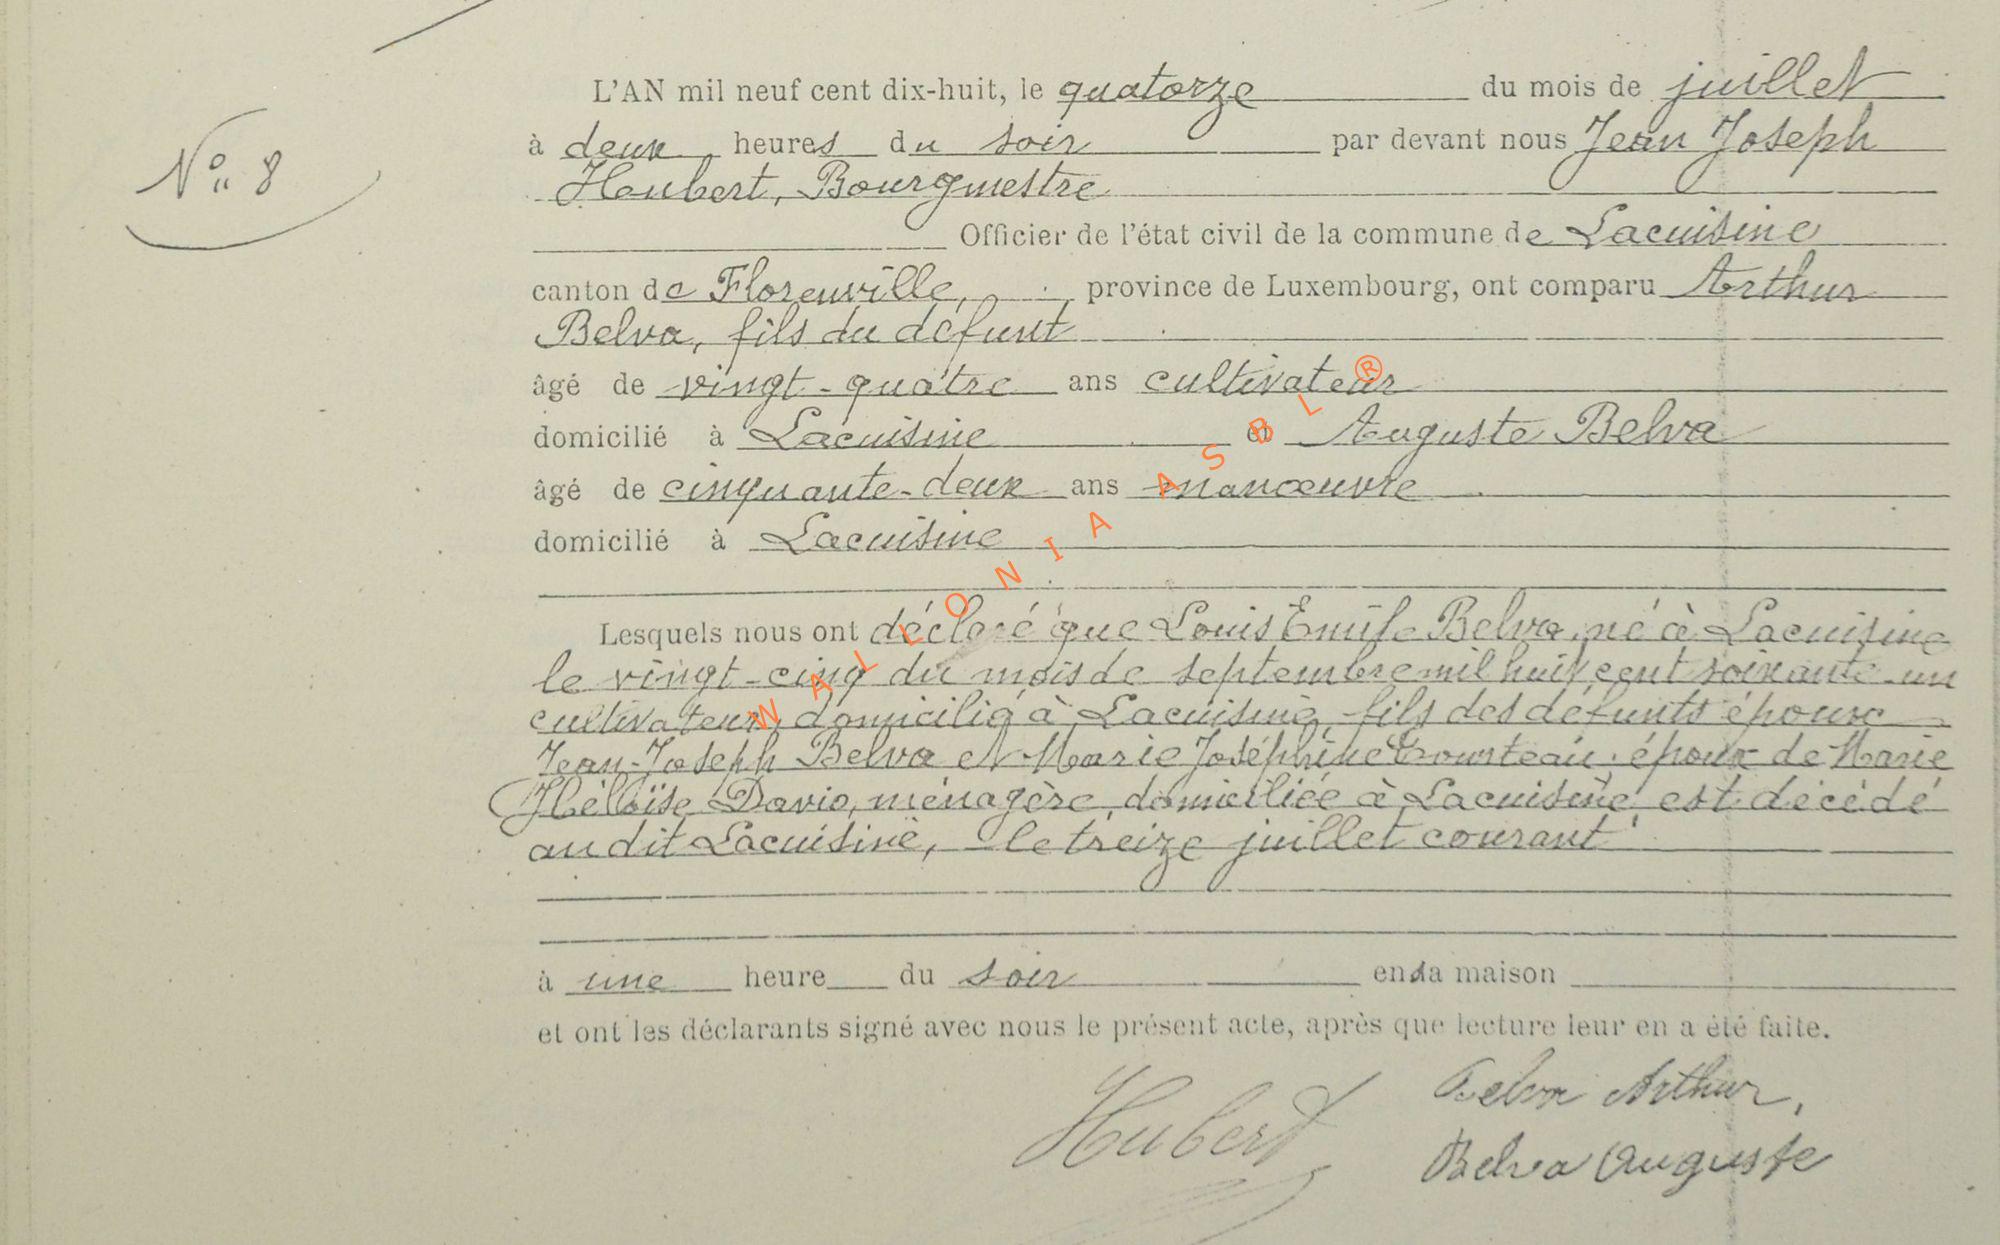 L'AN mil neuf cent dix-huit, le quatorze du mois de juillet
N° 8
à deux heures du soir par devant nous Jean Joseph
Hubert, Bourgmestre
Officier de l'état civil de la commune de Lacuisine
canton de Florenville, province de Luxembourg, ont comparu Arthur
Belva, fils du défunt
âgé de vingt-quatre ans cultivateur
domicilié à Lacuisine et Auguste Belva
âgé de cinquante-deux ans manœuvre
domicilié à Lacuisine
WALLONIA ASBL ®
Lesquels nous ont déclaré que Louis Emile Belva, né à Lacuisine
le vingt-cinq du mois de septembre mil huit cent soixante-un
cultivateur, domicilié à Lacuisine, fils des défunts époux
Jean-Joseph Belva et Marie Joséphine Courteau, époux de Marie
Héloïse Davio, ménagère, domiciliée à Lacuisine, est décédé
au dit Lacuisine, le treize juillet courant
à une heure du soir en sa maison
et ont les déclarants signé avec nous le présent acte, après que lecture leur en a été faite.
Hubert
Belva Arthur,
Belva Auguste